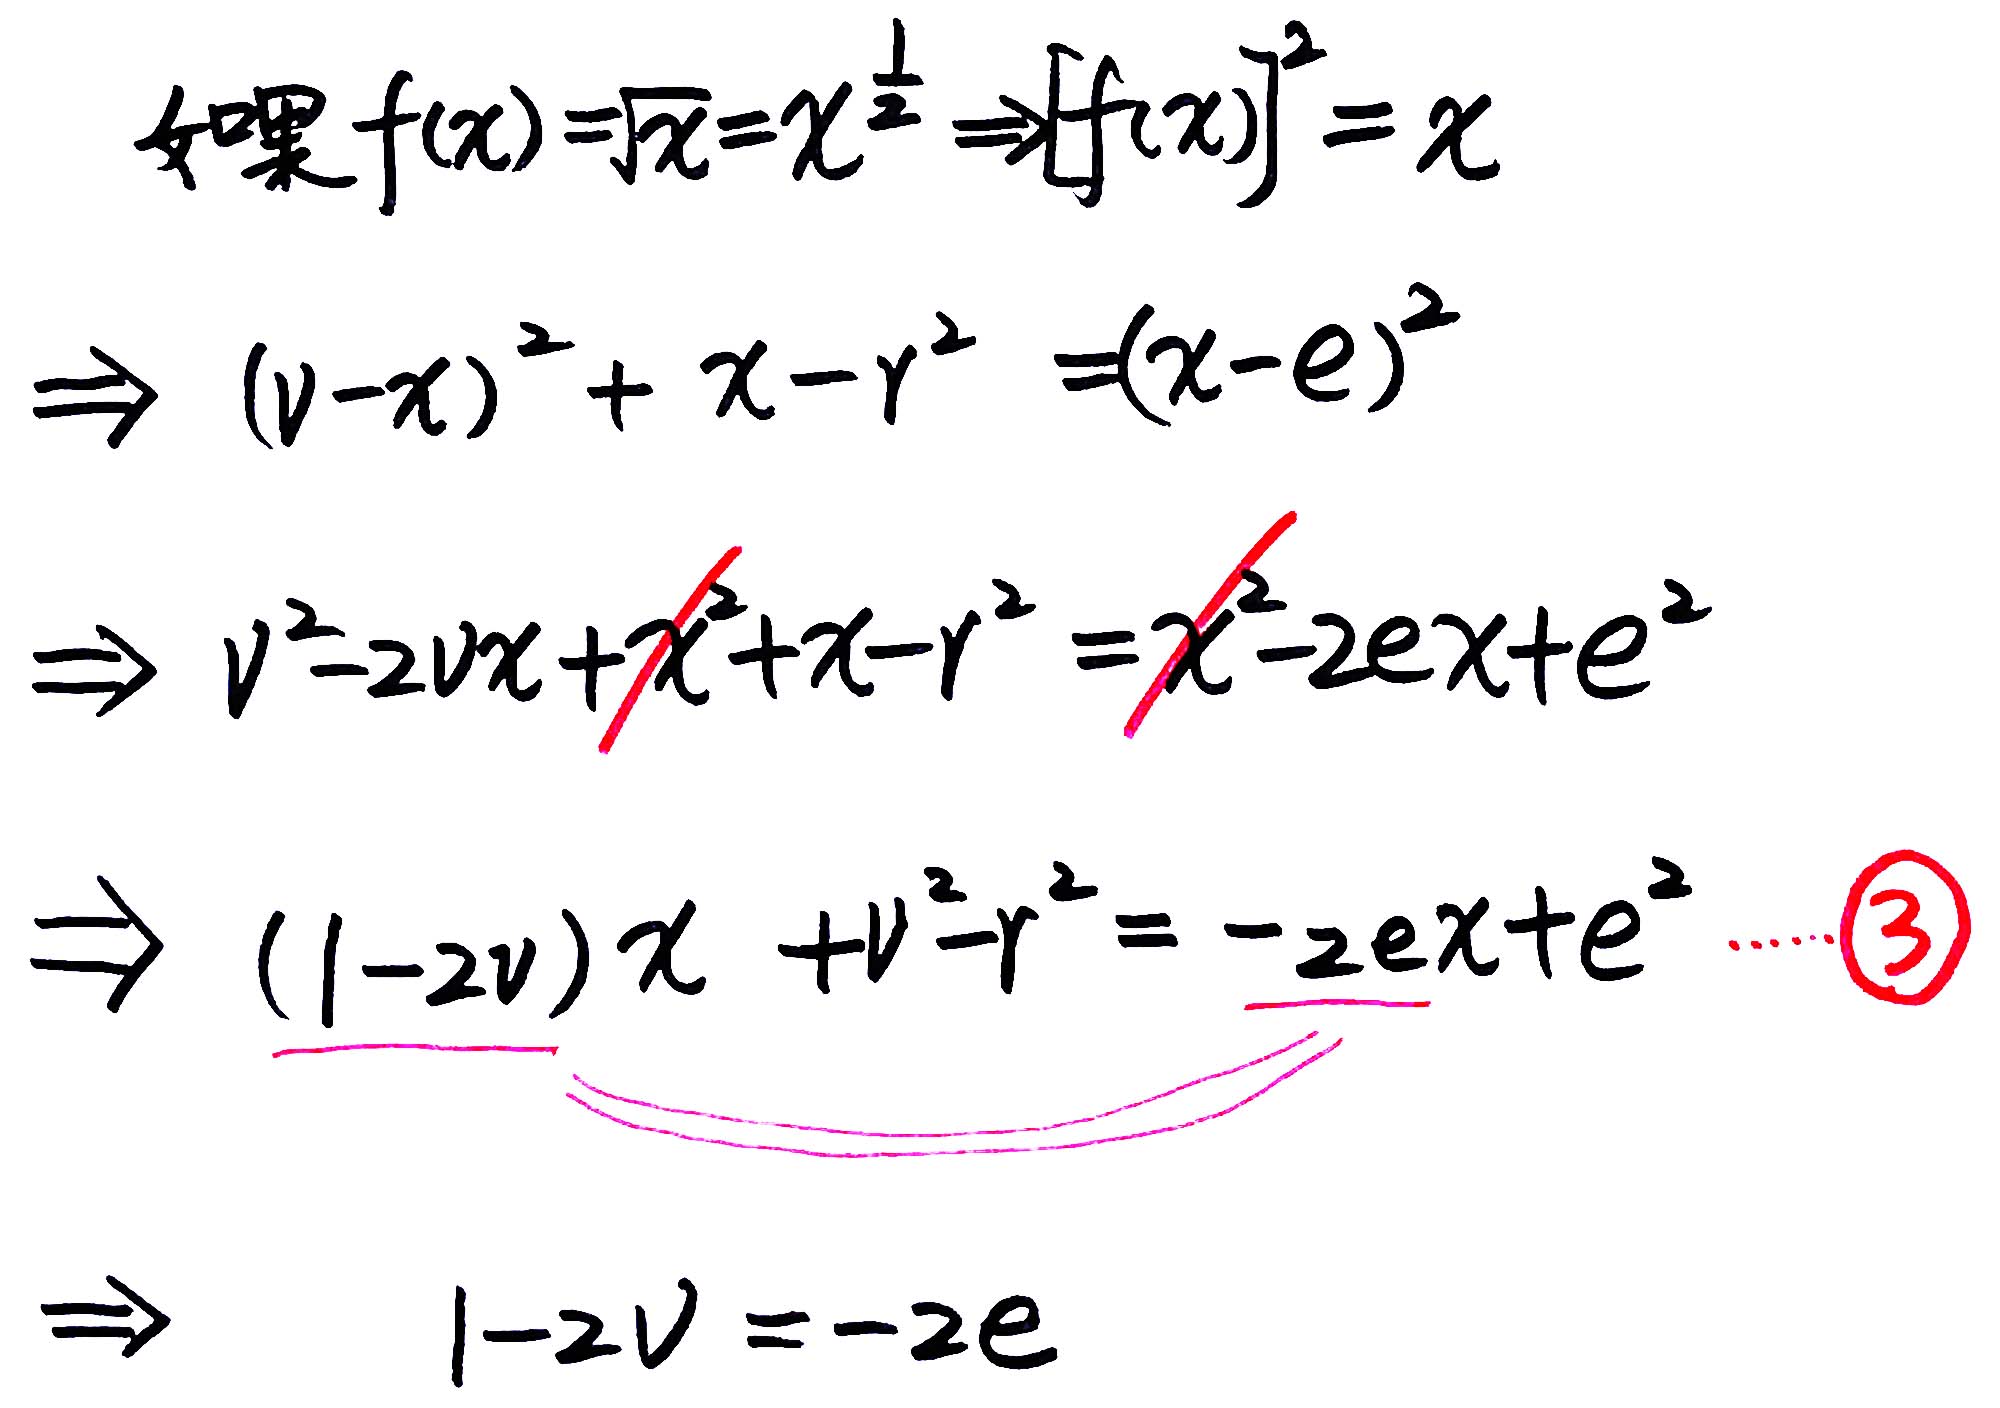 如果 f(x) = √x = x^{1/2} ⇒ [f(x)]² = x
⇒ (v-x)² + x - r² = (x-e)²
⇒ v² - 2vx + x² + x - r² = x² - 2ex + e²
⇒ (1-2v)x + v² - r² = -2ex + e² ······③
⇒ 1-2v = -2e